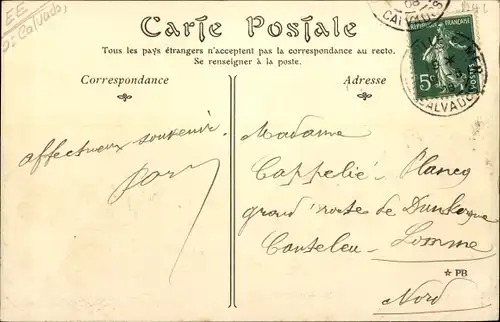 EE
Calvados
Carte Postale
Tous les pays étrangers n'acceptent pas la correspondance au recto.
Se renseigner à la poste.
Correspondance
Adresse
RÉPUBLIQUE FRANÇAISE
5c
POSTES
CALVADOS
CALVADOS
affectueux souvenir.
Madame
Cappelié-Plancq
grand'route de Dunkerque
Canteleu-Lomme
* PB
Nord